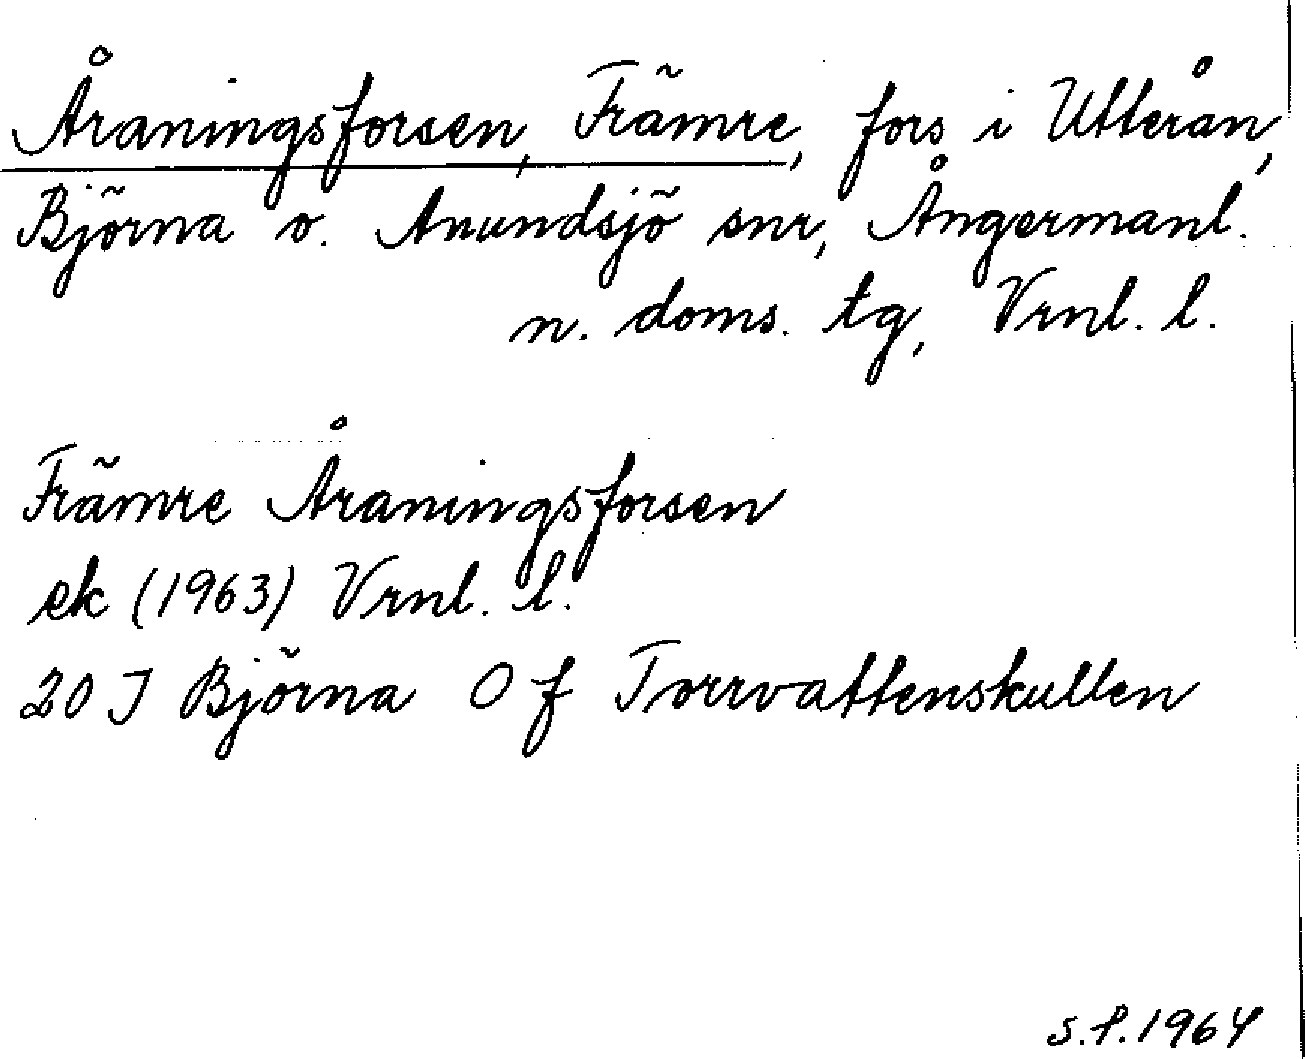 Åraningsforsen, Främre, fors i Utterån,
Björna o. Anundsjö snr, Ångermanl.
n. doms. tg, Vrnl. l.
Främre Åraningsforsen
ek (1963) Vrnl. l.
20 J Björna 0 f Torrvattenskullen
S.P. 1964